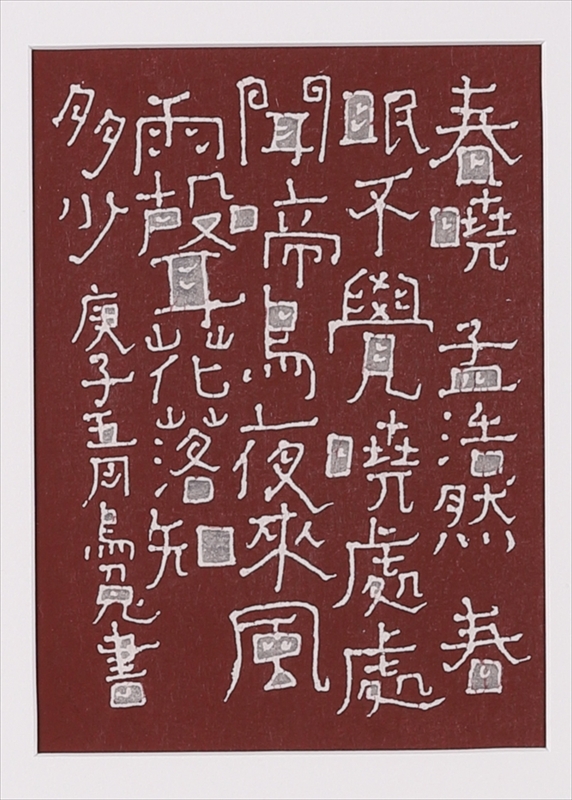 春曉 孟浩然 春
眠不覺曉處處
聞啼鳥夜來風
雨聲花落知
多少 庚子五月書